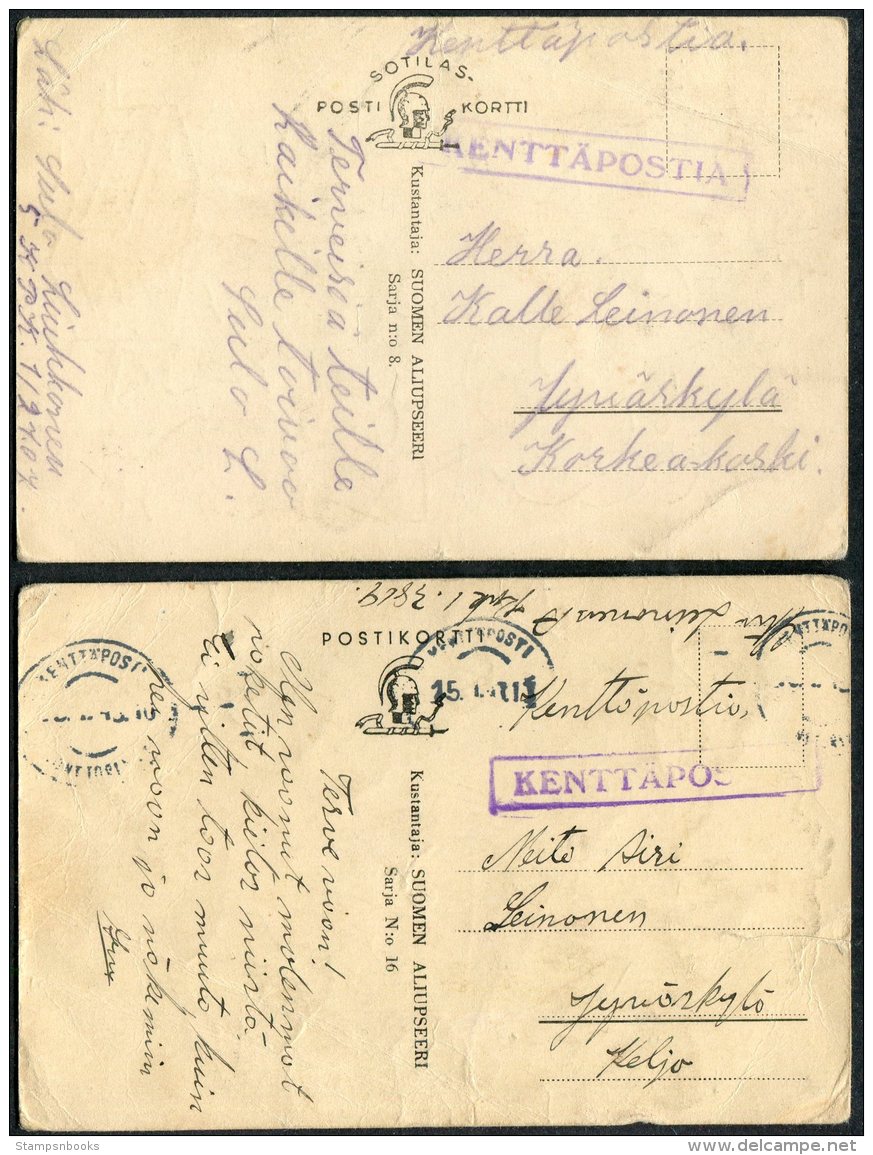 Kenttäpostia.
SOTILAS-
POSTI KORTTI
KENTTÄPOSTIA
Kustantaja: SUOMEN ALIUPSEERI
Sarja n:o 8.
Terveisiä teille
Kaikille toivoo
Sulo L.
Läh. Sulo
5 K.P.K. 1/
Herra.
Kalle Leinonen
Jyväskylä
Korkeakoski.
Leinonen
3819.
POSTIKORTTI
KENTTÄPOSTI
KENTTÄPOSTI
15.
Kenttäpostia
KENTTÄPOS
Kustantaja: SUOMEN ALIUPSEERI
Sarja N:o 16
Terve vaan!
Olen saanut molemmat
paketit kiitos niistä.
Ei sitten taas muuta kuin
hei vaan ja näkemiin
Neito Siri
Leinonen
Jyväskylä
Keljo
Stampsnbooks